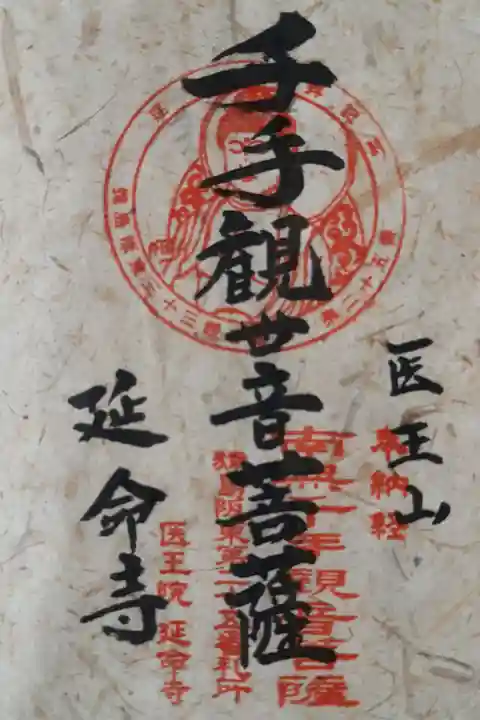 医王山
奉納経
千手観世音菩薩
南無千手観音菩薩
猿島阪東第二十五番札所
医王院 延命寺
延命寺